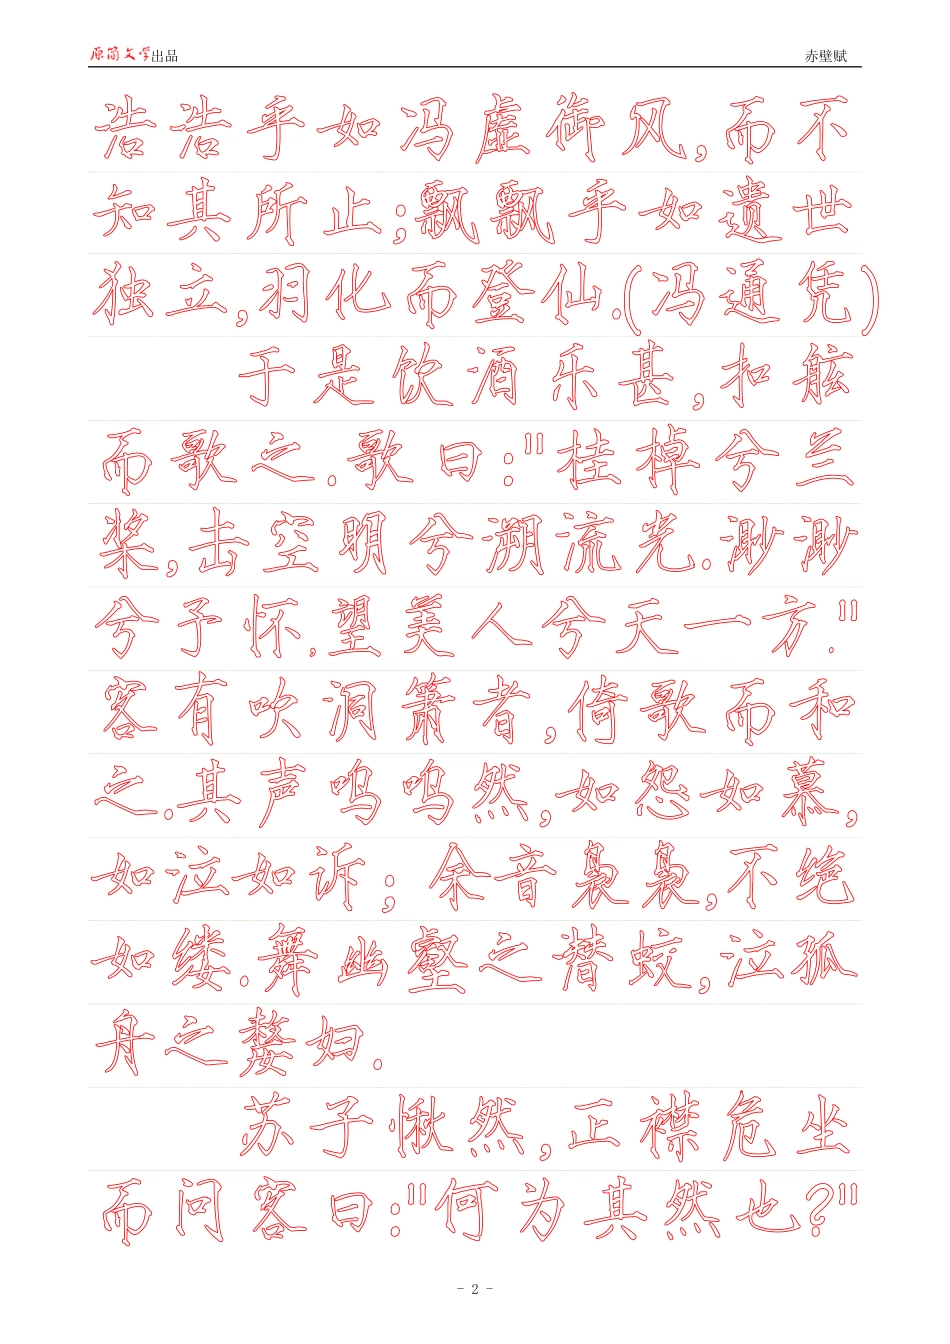 原简文学出品 赤壁赋
浩浩乎如冯虚御风,而不
知其所止;飘飘乎如遗世
独立,羽化而登仙.(冯通凭)
于是饮酒乐甚,扣舷
而歌之.歌曰:"桂棹兮兰
桨,击空明兮溯流光.渺渺
兮予怀,望美人兮天一方."
客有吹洞箫者,倚歌而和
之.其声呜呜然,如怨如慕,
如泣如诉;余音袅袅,不绝
如缕.舞幽壑之潜蛟,泣孤
舟之嫠妇.
苏子愀然,正襟危坐
而问客曰:"何为其然也?"
- 2 -